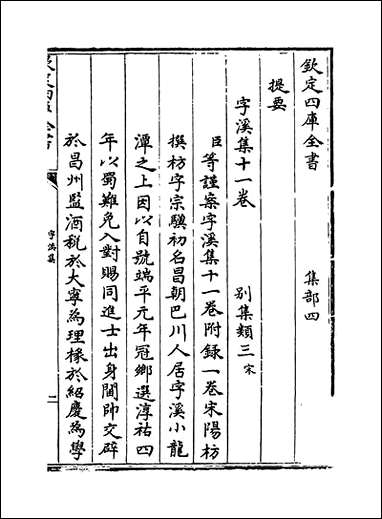 欽定四庫全書 集部四
提要
字溪集十一卷 別集類三宋
臣等謹案字溪集十一卷附録一卷宋陽枋
撰枋字宗驥初名昌朝巴川人居字溪小龍
潭之上因以自號端平元年冠鄉選淳祐四
年以蜀難免入對賜同進士出身閫帥交辟
於昌州監酒稅於大寧為理掾於紹慶為學
字溪集
二